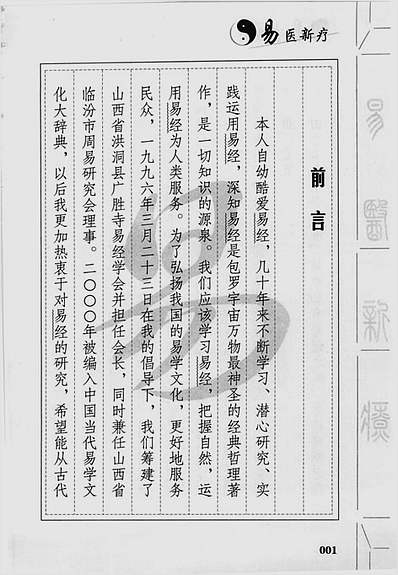 易医新疗
前言
本人自幼酷爱易经，几十年来不断学习、潜心研究、实
践运用易经，深知易经是包罗宇宙万物最神圣的经典哲理著
作，是一切知识的源泉。我们应该学习易经，把握自然，运
用易经为人类服务。为了弘扬我国的易学文化，更好地服务
民众，一九九六年三月二十三日在我的倡导下，我们筹建了
山西省洪洞县广胜寺易经学会并担任会长，同时兼任山西省
临汾市周易研究会理事。二〇〇〇年被编入中国当代易学文
化大辞典，以后我更加热衷于对易经的研究，希望能从古代
易
易醫新療
001